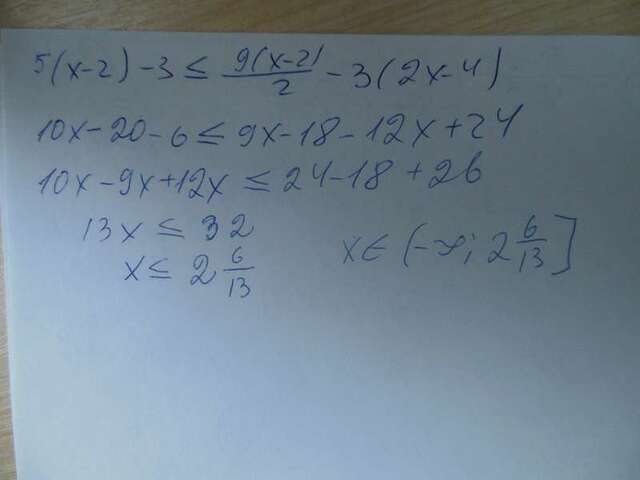 5(x-2)-3 ≤ 9(x-2)/2 - 3(2x-4)
10x-20-6 ≤ 9x-18-12x+24
10x-9x+12x ≤ 24-18+26
13x ≤ 32
x ≤ 2 6/13
x∈(-∞; 2 6/13]